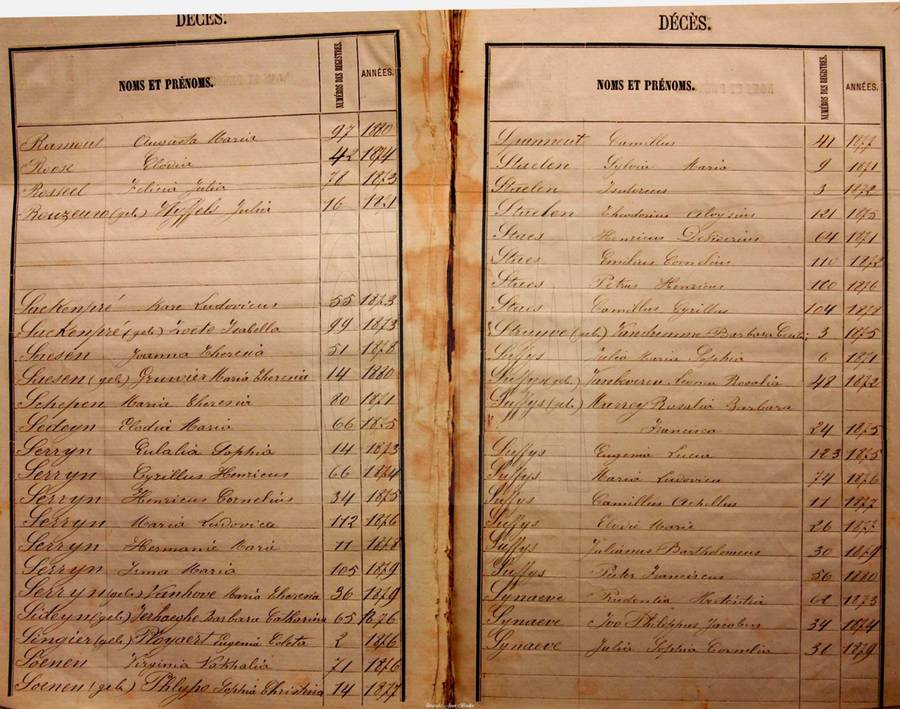 DÉCÈS.
NOMS ET PRÉNOMS. NUMÉROS DES REGISTRES. ANNÉES.
Ramout Augusta Maria 97 1880
Roose Elodia 42 1874
Rosseel Felicia Julia 78 1873
Rouzeuw (geb.) Wyffels Julia 16 1871
Sackenpré Karel Ludovicus 55 1873
Sackenpré (geb.) Zoete Isabella 99 1873
Saesen Joanna Theresia 51 1878
Saesen (geb.) Maria Theresia 14 1880
Schepen Maria Theresia 80 1871
Sedeyn Elodia Maria 66 1875
Serryn Eulalia Sophia 14 1873
Serryn Cyrillus Henricus 66 1874
Serryn Henricus Cornelius 34 1875
Serryn Maria Ludovica 112 1876
Serryn Hermanie Marie 11 1878
Serryn Irma Maria 105 1879
Serryn (geb.) Vanhove Maria Theresia 36 1879
Sideyn (geb.) Verhaeghe Barbara Catharina 65 1876
Singier (geb.) Ployaert Eugenia Coleta 2 1876
Soenen Virginia Nathalia 71 1876
Soenen (geb.) Phlypo Sophia Christina 14 1877
DÉCÈS.
NOMS ET PRÉNOMS. NUMÉROS DES REGISTRES. ANNÉES.
Spanneut Camillus 41 1877
Staelen Sylvia Maria 9 1871
Staelen Isidorus 3 1872
Staelen Theodorius Aloysius 121 1875
Staes Henricus Desiderius 64 1871
Staes Emilius Cornelius 110 1872
Staes Petrus Henricus 100 1876
Staes Camillus Cyrillus 104 1878
Struyve (geb.) Vandamme Barbara 3 1875
Suffys Julia Maria Sophia 6 1871
Suffys (geb.) Rosalia 48 1872
Suffys (geb.) Rosalia Barbara
Francisca 24 1875
Suffys Eugenia Lucia 123 1875
Suffys Maria Ludovica 74 1876
Suffys Camillus Achillus 11 1877
Suffys Elodie Marie 26 1877
Suffys Julianus Bartholomeus 30 1879
Suffys Pieter Franciscus 56 1880
Synaeve Prudentia Hortentia 62 1873
Synaeve Ivo Philippus Jacobus 34 1874
Synaeve Julia Sophia Cornelia 31 1879